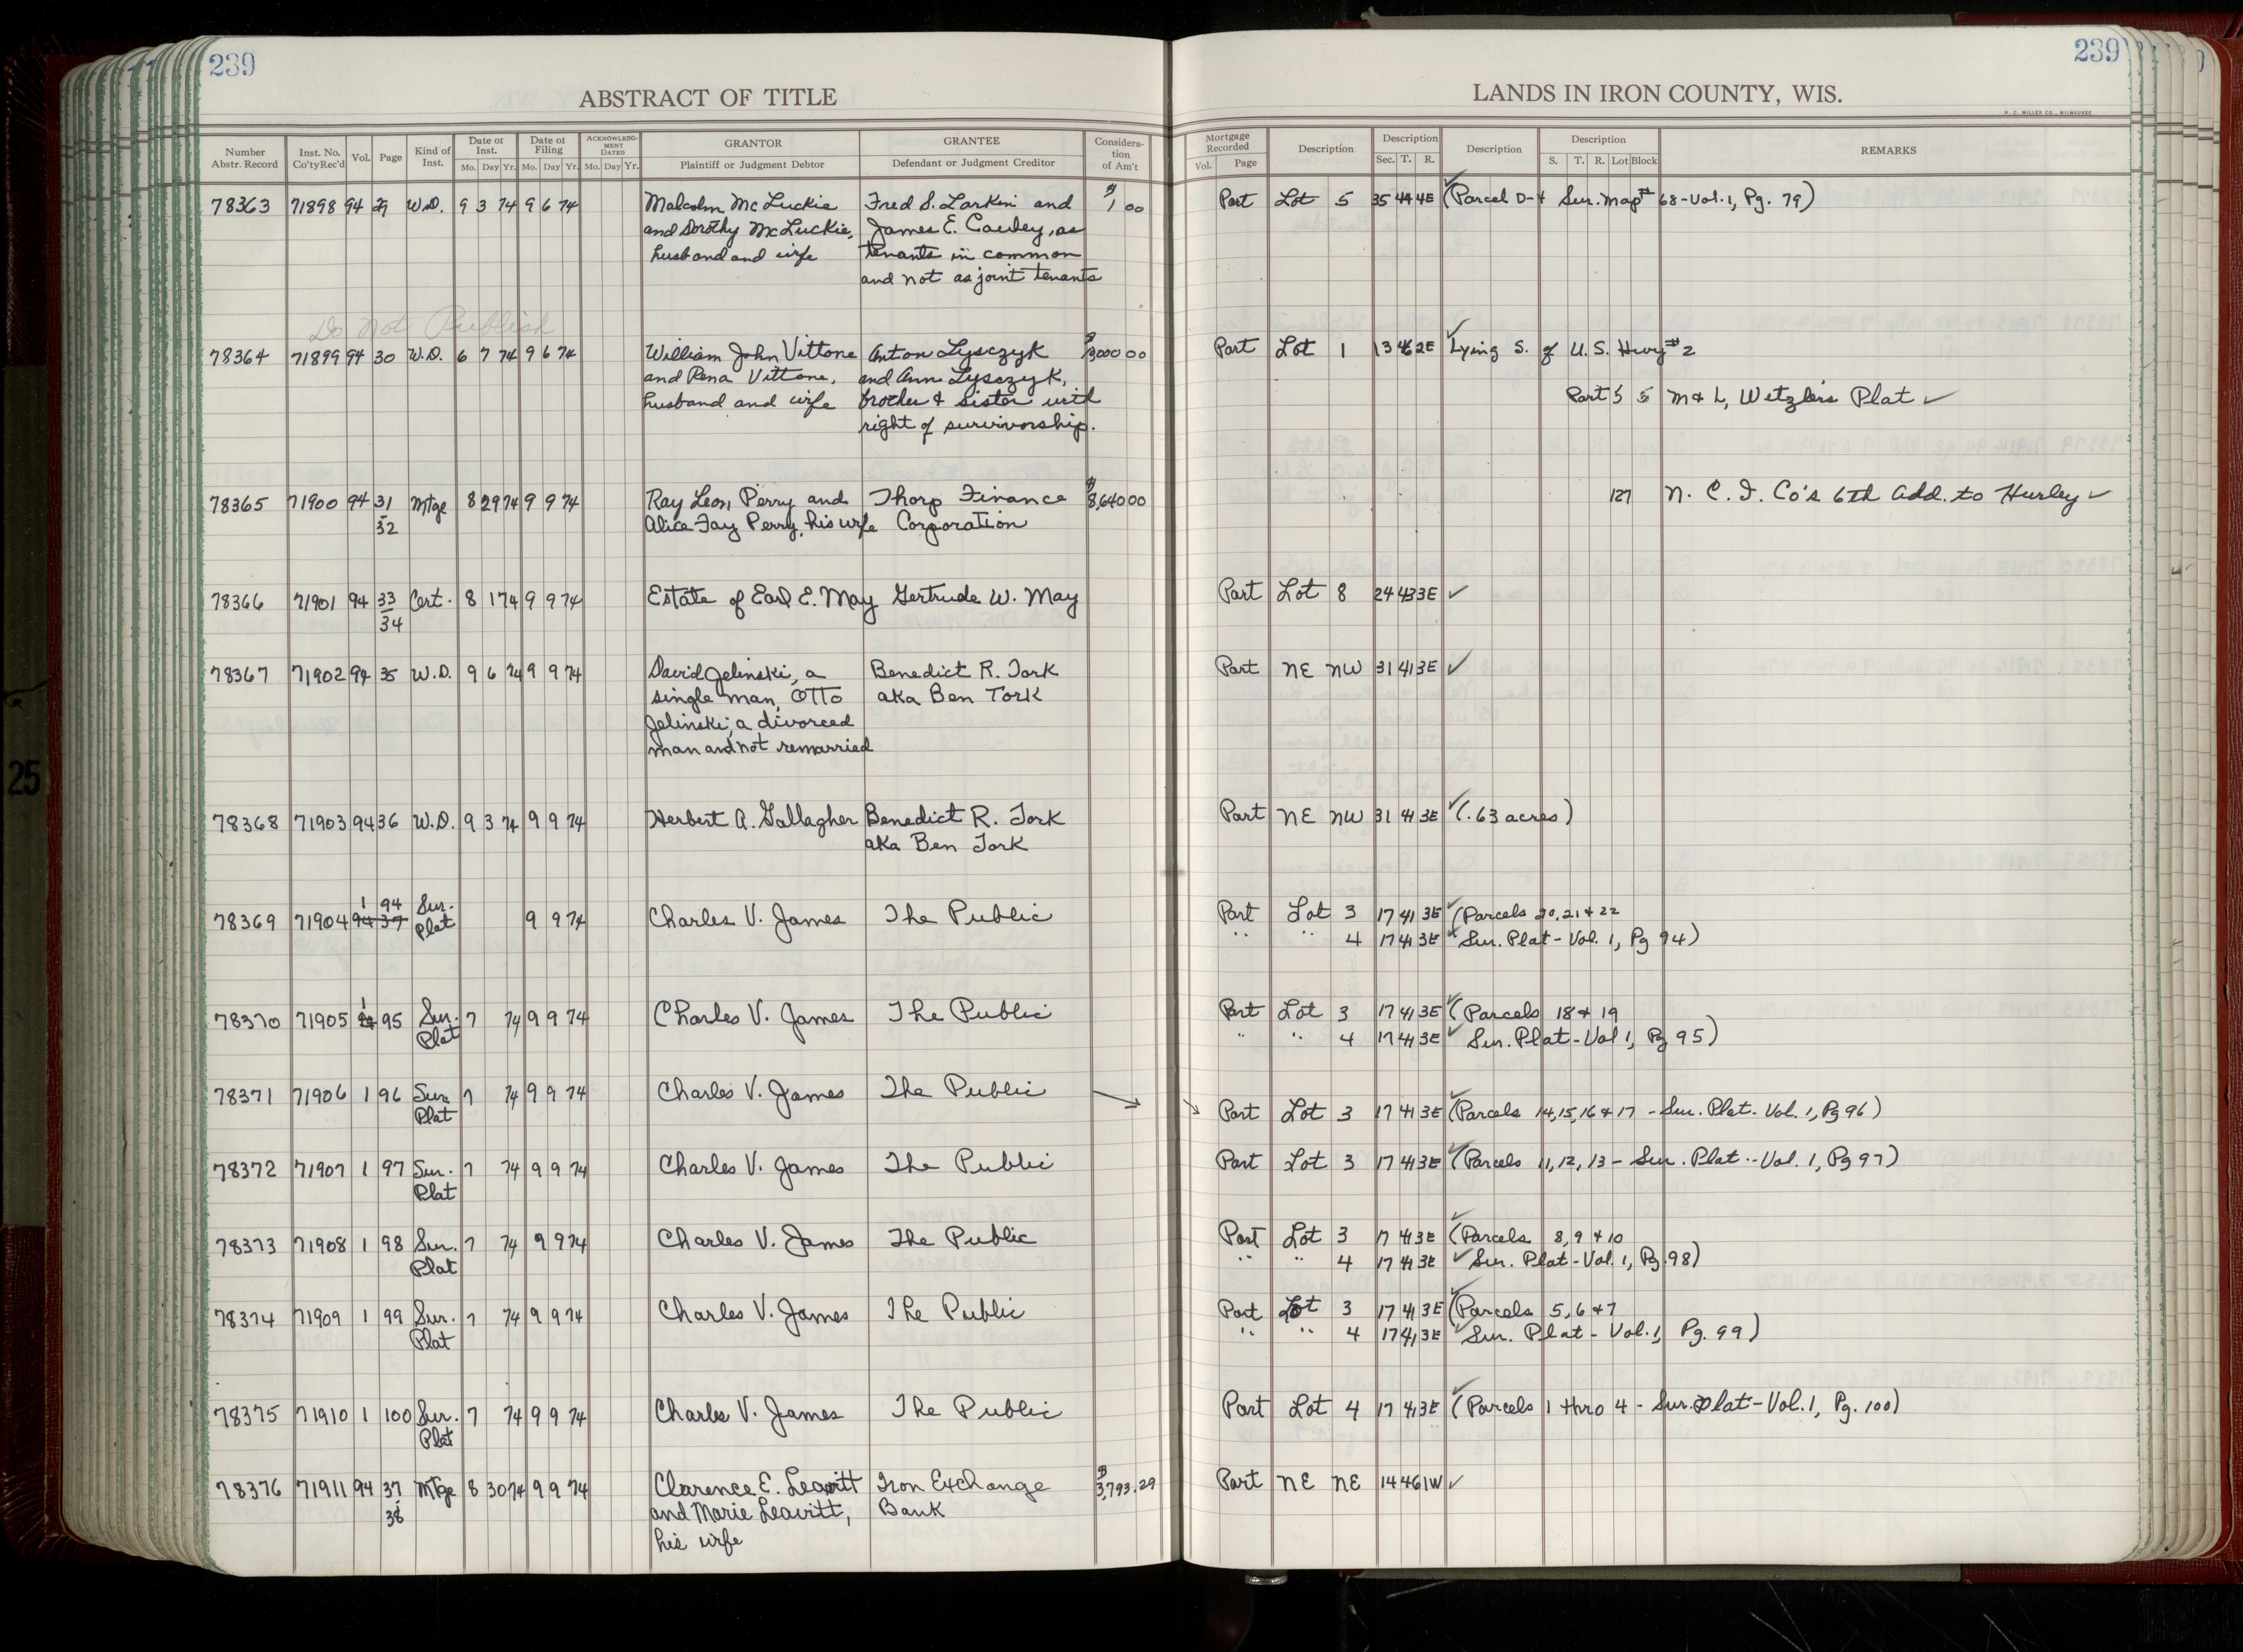 239
ABSTRACT OF TITLE
Number Abstr. Record Inst. No. Co'tyRec'd Vol. Page Kind of Inst. Date of Inst. Mo. Day Yr. Date of Filing Mo. Day Yr. ACKNOWLEDGMENT DATED Mo. Day Yr. GRANTOR Plaintiff or Judgment Debtor GRANTEE Defendant or Judgment Creditor Consideration of Am't
239
LANDS IN IRON COUNTY, WIS.
H. C. MILLER CO., MILWAUKEE
Mortgage Recorded Vol. Page Description Description Sec. T. R. Description Description S. T. R. Lot Block REMARKS
78363 71898 94 29 W.D. 9 3 74 9 6 74 Malcolm McLuckie Fred S. Larkin and $1 00 Part Lot 5 35 44 4E (Parcel D-4 Sur. Map # 68-Vol. 1, Pg. 79)
and Dorothy McLuckie, James E. Cauley, as
husband and wife tenants in common
and not as joint tenants
Do Not Publish
78364 71899 94 30 W.D. 6 7 74 9 6 74 William John Vittone Anton Lysczyk $3000 00 Part Lot 1 13 46 2E Lying S. of U.S. Hwy # 2
and Rena Vittone, and Ann Lysczyk,
husband and wife brother & sister with Part 5 5 M & L, Wetzler's Plat
right of survivorship.
78365 71900 94 31 Mtge 8 29 74 9 9 74 Ray Leon Perry and Thorp Finance $8,640 00 127 N. C. I. Co's 6th Add. to Hurley
32 Alice Fay Perry, his wife Corporation
78366 71901 94 33 Cert. 8 1 74 9 9 74 Estate of Earl E. May Gertrude W. May Part Lot 8 24 43 3E
34
78367 71902 94 35 W.D. 9 6 74 9 9 74 David Jelinski, a Benedict R. Tork Part NE NW 31 41 3E
single man, Otto aka Ben Tork
Jelinski, a divorced
man and not remarried
78368 71903 94 36 W.D. 9 3 74 9 9 74 Herbert A. Gallagher Benedict R. Tork Part NE NW 31 41 3E (.63 acres)
aka Ben Tork
1 94 Sur.
78369 71904 94 37 Plat 9 9 74 Charles V. James The Public Part Lot 3 17 41 3E (Parcels 20, 21 & 22
" " 4 17 41 3E Sur. Plat - Vol. 1, Pg 94)
1
78370 71905 94 95 Sur. 7 74 9 9 74 Charles V. James The Public Part Lot 3 17 41 3E (Parcels 18 & 19
Plat " " 4 17 41 3E Sur. Plat - Vol 1, Pg 95)
78371 71906 1 96 Sur. 7 74 9 9 74 Charles V. James The Public Part Lot 3 17 41 3E (Parcels 14, 15, 16 & 17 - Sur. Plat - Vol. 1, Pg 96)
Plat
78372 71907 1 97 Sur. 7 74 9 9 74 Charles V. James The Public Part Lot 3 17 41 3E (Parcels 11, 12, 13 - Sur. Plat - Vol. 1, Pg 97)
Plat
78373 71908 1 98 Sur. 7 74 9 9 74 Charles V. James The Public Part Lot 3 17 41 3E (Parcels 8, 9 & 10
Plat " " 4 17 41 3E Sur. Plat - Vol. 1, Pg. 98)
78374 71909 1 99 Sur. 7 74 9 9 74 Charles V. James The Public Part Lot 3 17 41 3E (Parcels 5, 6 & 7
Plat " " 4 17 41 3E Sur. Plat - Vol. 1, Pg. 99)
78375 71910 1 100 Sur. 7 74 9 9 74 Charles V. James The Public Part Lot 4 17 41 3E (Parcels 1 thro 4 - Sur. Plat - Vol. 1, Pg. 100)
Plat
78376 71911 94 37 Mtge 8 30 74 9 9 74 Clarence E. Leavitt Iron Exchange $3,793.29 Part NE NE 14 46 1W
38 and Marie Leavitt, Bank
his wife
25